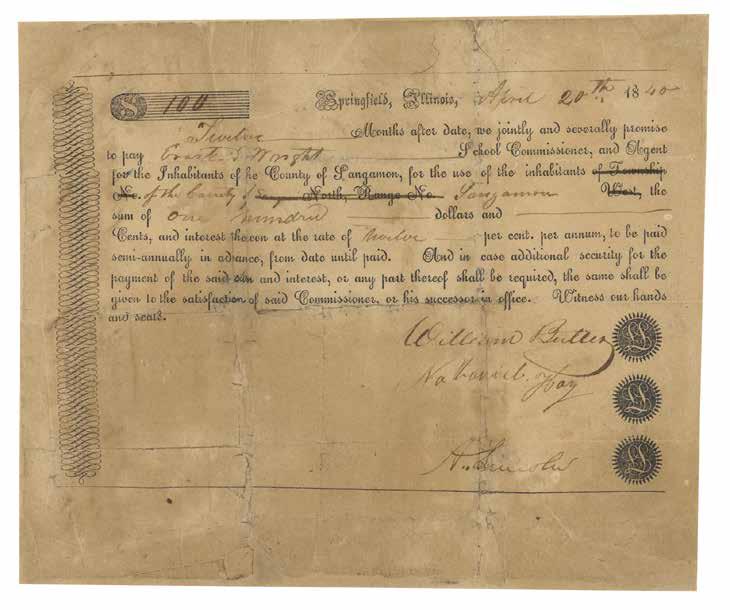 $ 100 Springfield, Illinois, April 20th 1840
Twelve Months after date, we jointly and severally promise
to pay Erastus Wright School Commissioner, and Agent
for the Inhabitants of he County of Sangamon, for the use of the inhabitants of Township
No. of the County North, Range No. Sangamon West, the
sum of One hundred dollars and
Cents, and interest thereon at the rate of twelve per cent. per annum, to be paid
semi-annually in advance, from date until paid. And in case additional security for the
payment of the said sum and interest, or any part thereof shall be required, the same shall be
given to the satisfaction of said Commissioner, or his successor in office. Witness our hands
and seals.
William Butler
Nathaniel Hay
A. Lincoln